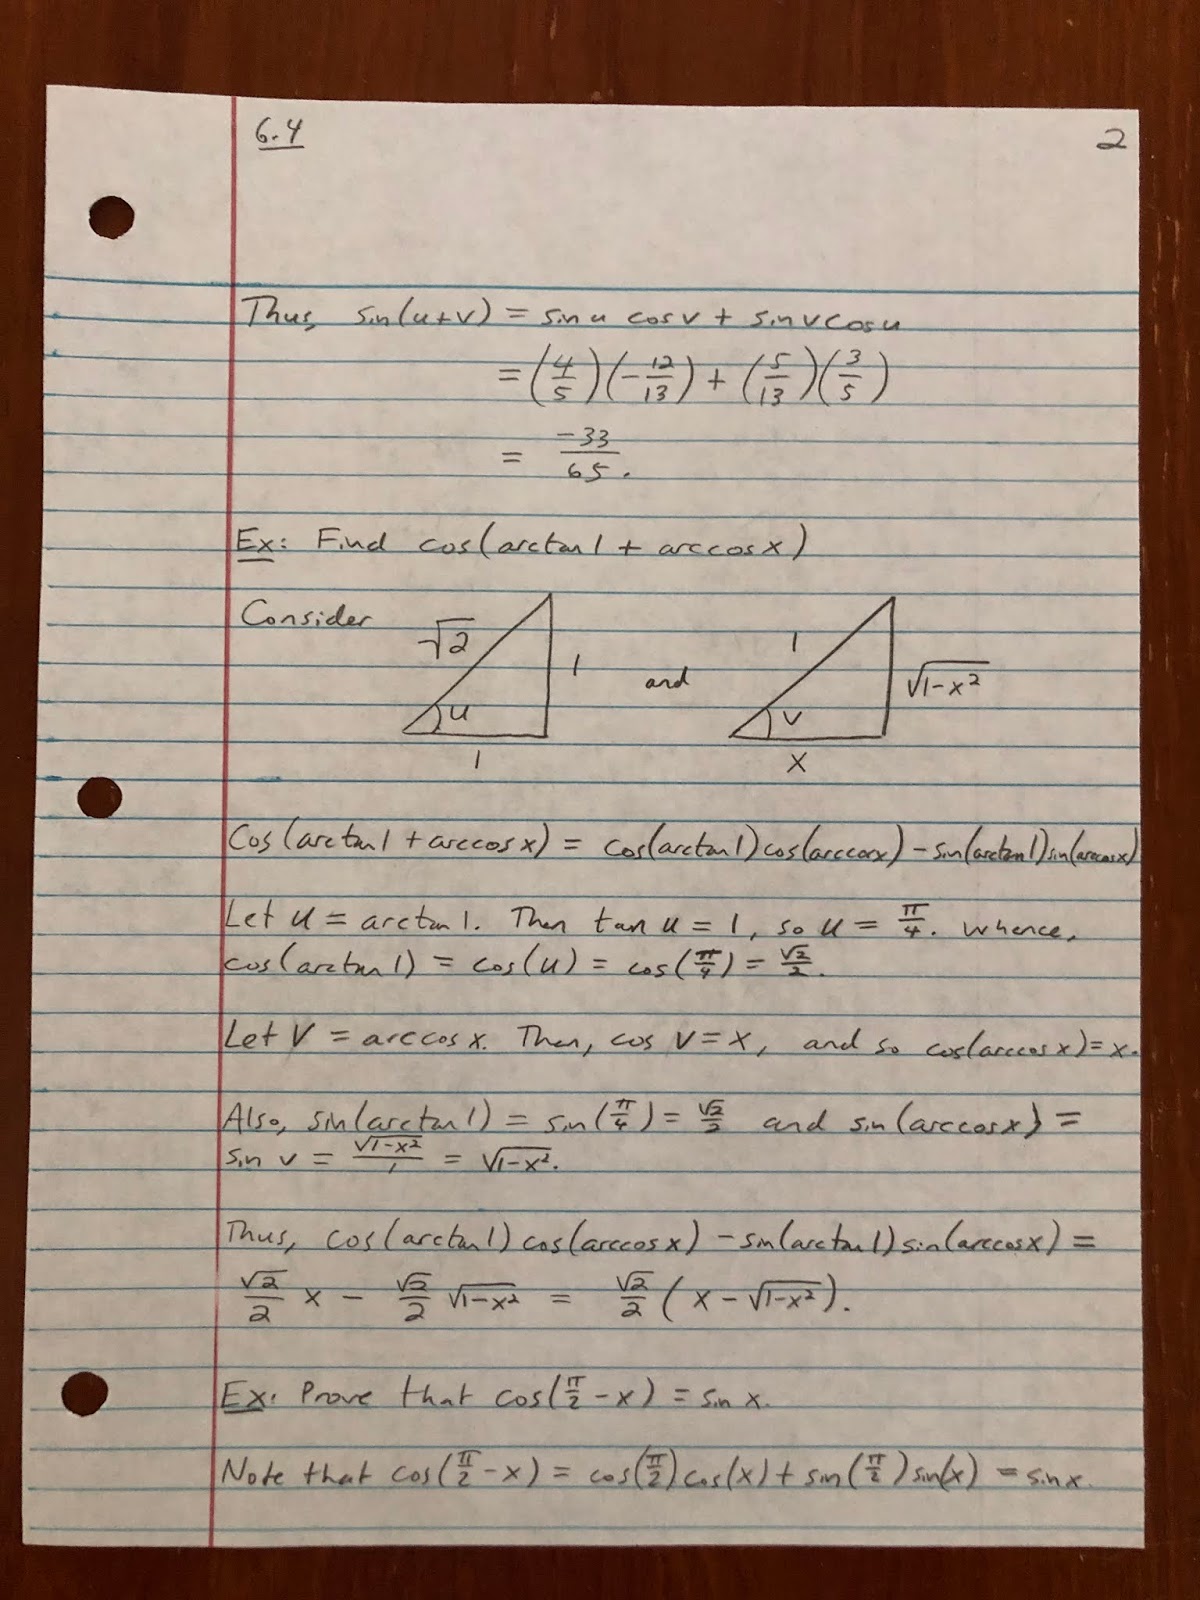 6.4 2
Thus, sin(u+v) = sin u cos v + sin v cos u
= (4/5)(-12/13) + (5/13)(3/5)
= -33/65.
Ex: Find cos(arctan 1 + arccos x)
Consider √2 1 u 1 and 1 √(1-x²) v x
Cos(arctan 1 + arccos x) = cos(arctan 1) cos(arccos x) - sin(arctan 1) sin(arccos x)
Let u = arctan 1. Then tan u = 1, so u = π/4. Whence,
cos(arctan 1) = cos(u) = cos(π/4) = √2/2.
Let V = arccos x. Then, cos V = x, and so cos(arccos x) = x.
Also, sin(arctan 1) = sin(π/4) = √2/2 and sin(arccos x) =
sin v = √(1-x²)/1 = √(1-x²).
Thus, cos(arctan 1) cos(arccos x) - sin(arctan 1) sin(arccos x) =
√2/2 x - √2/2 √(1-x²) = √2/2 (x - √(1-x²)).
Ex: Prove that cos(π/2 - x) = sin x.
Note that cos(π/2 - x) = cos(π/2) cos(x) + sin(π/2) sin(x) = sin x.